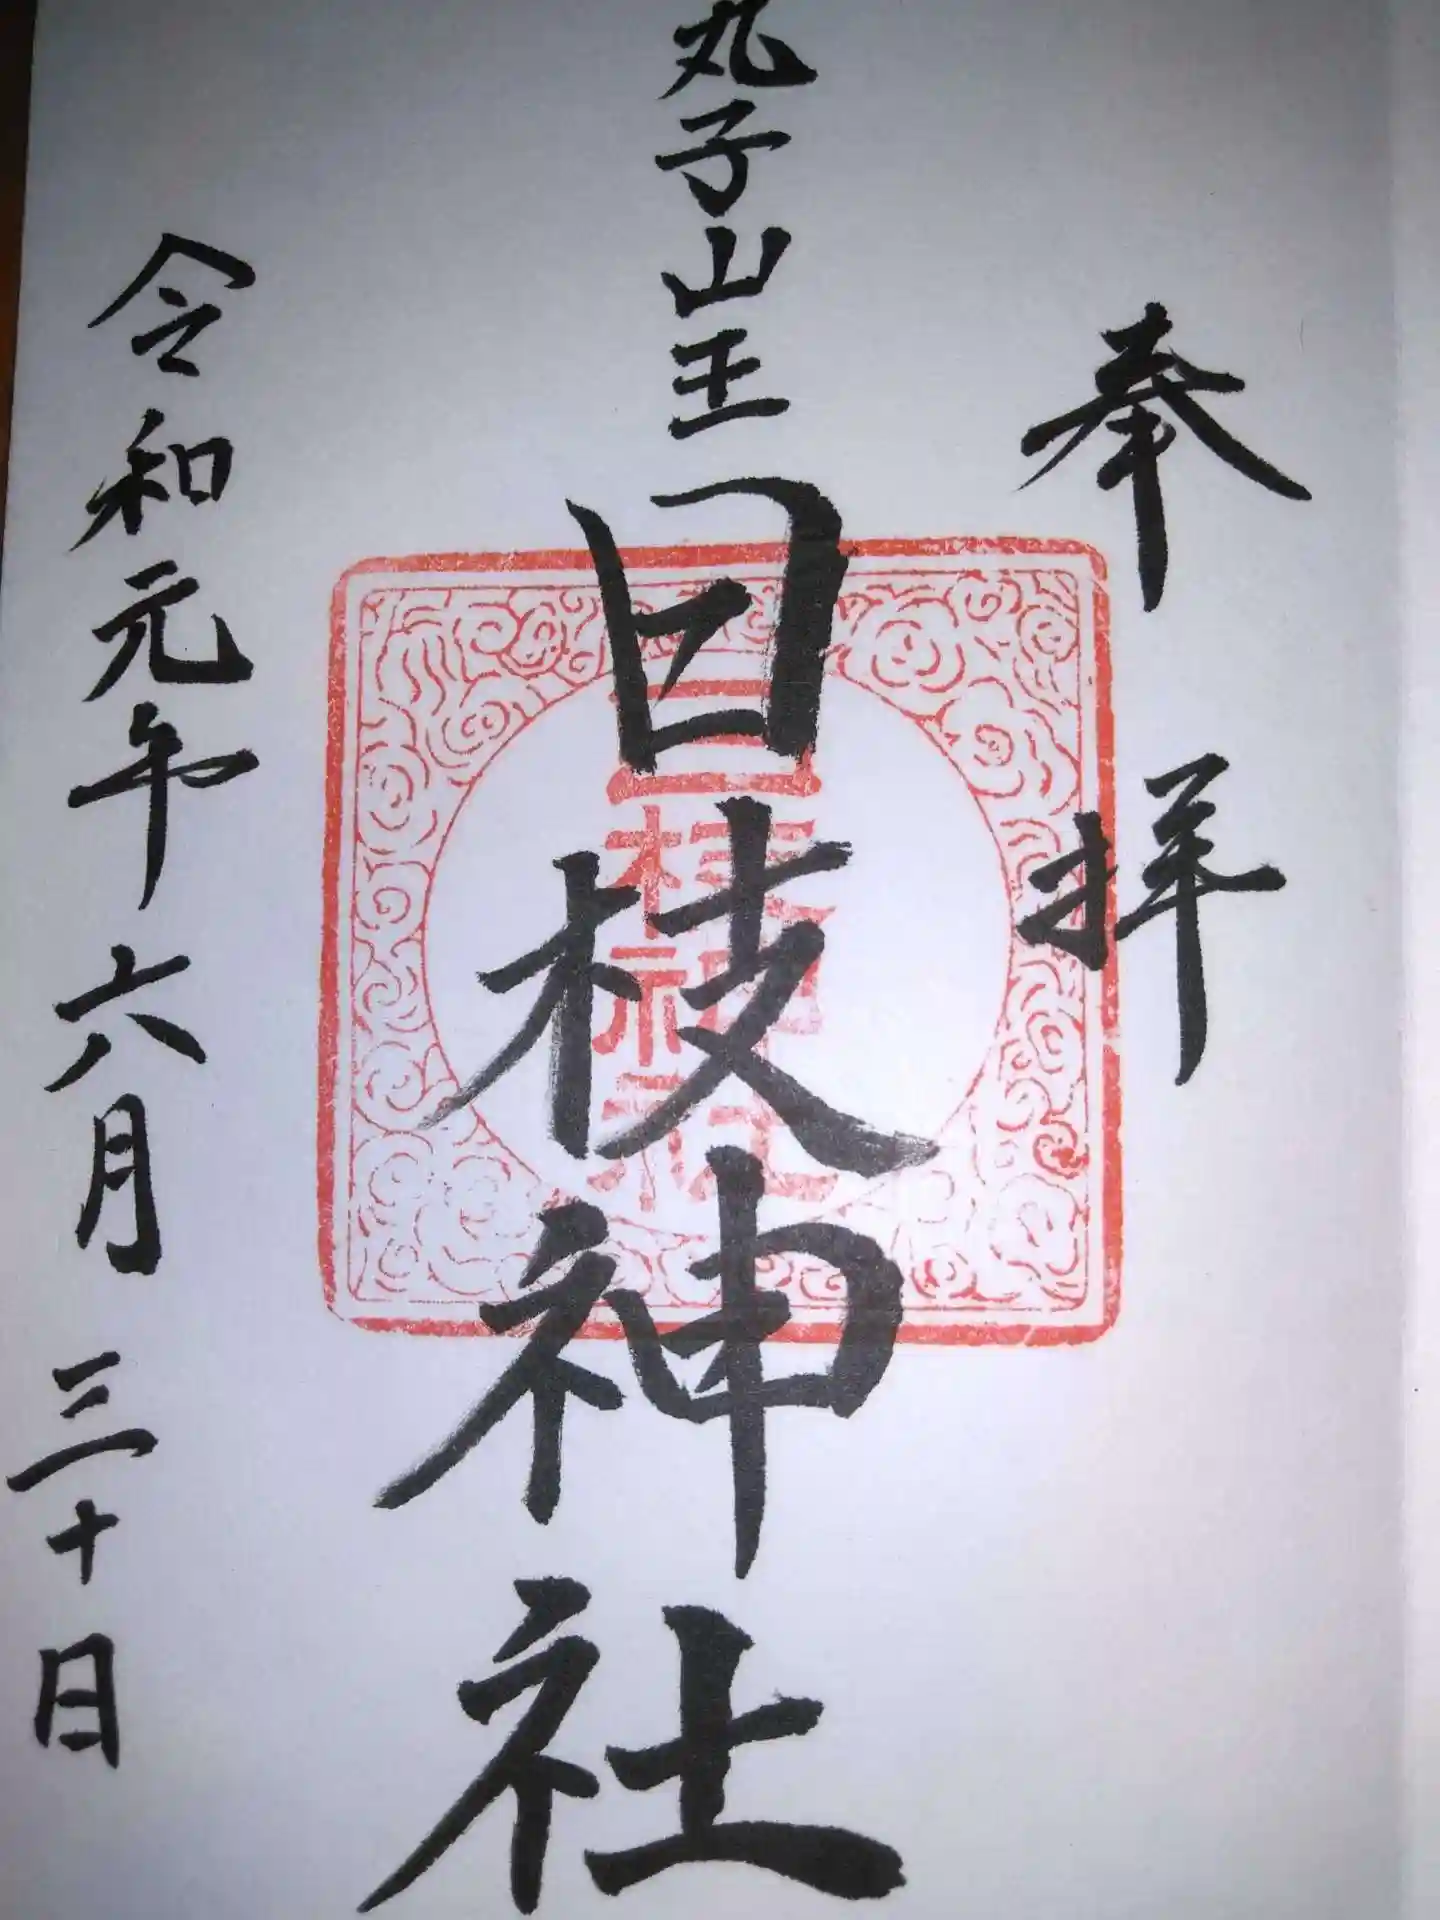 奉拝
丸子山王日枝神社
日枝神社
令和元年六月三十日